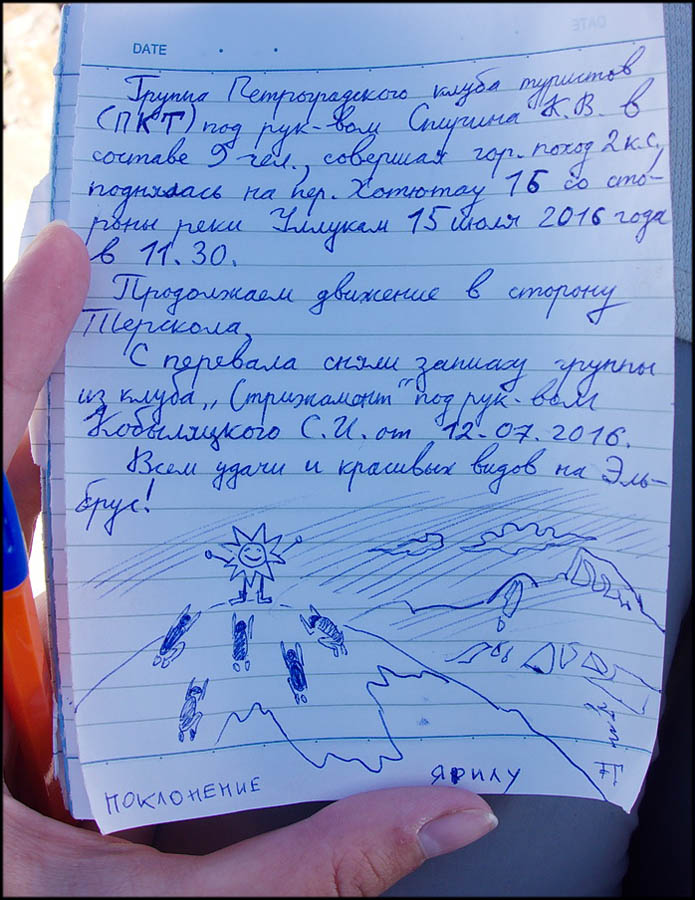 DATE
Группа Петроградского клуба туристов
(ПКТ) под рук-вом Спичина К.В. в
составе 9 чел., совершая гор. поход 2 к.с,
поднялась на пер. Хотютау 1Б со сто-
роны реки Уллукам 15 июля 2016 года
в 11.30.
Продолжаем движение в сторону
Терскола.
С перевала сняли записку группы
из клуба „Стрижамент" под рук-вом
Кобыляцкого С.И. от 12.07.2016.
Всем удачи и красивых видов на Эль-
брус!
ПОКЛОНЕНИЕ ЯРИЛУ